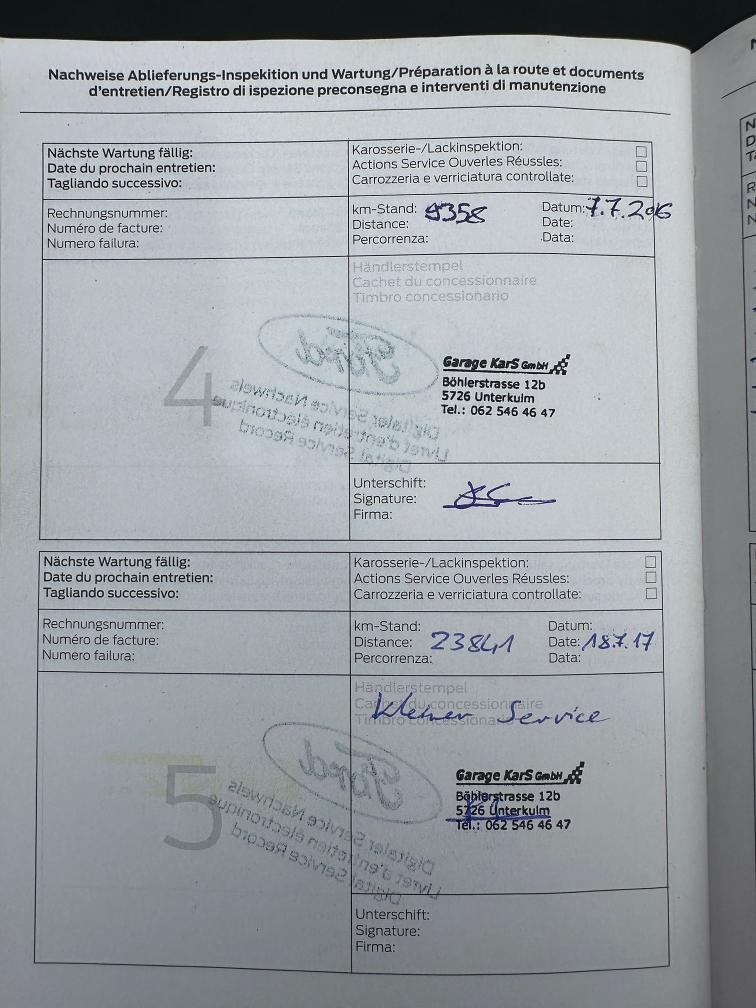 Nachweise Ablieferungs-Inspekition und Wartung/Préparation à la route et documents
d'entretien/Registro di ispezione preconsegna e interventi di manutenzione
Nächste Wartung fällig:
Date du prochain entretien:
Tagliando successivo:
Karosserie-/Lackinspektion:
Actions Service Ouverles Réussles:
Carrozzeria e verriciatura controllate:
Rechnungsnummer:
Numéro de facture:
Numero failura:
km-Stand: 9358
Distance:
Percorrenza:
Datum: 7.7.2016
Date:
Data:
Händlerstempel
Cachet du concessionnaire
Timbro concessionario
4
Ford
Digitaler Service Nachweis
Livret d'entretien électronique
Digital Service Record
Garage KarS GmbH
Böhlerstrasse 12b
5726 Unterkulm
Tel.: 062 546 46 47
Unterschift:
Signature:
Firma:
Nächste Wartung fällig:
Date du prochain entretien:
Tagliando successivo:
Karosserie-/Lackinspektion:
Actions Service Ouverles Réussles:
Carrozzeria e verriciatura controllate:
Rechnungsnummer:
Numéro de facture:
Numero failura:
km-Stand:
Distance: 23841
Percorrenza:
Datum:
Date: 18.7.17
Data:
Händlerstempel
Cachet du concessionnaire
Timbro concessionario
Kleiner Service
5
Ford
Digitaler Service Nachweis
Livret d'entretien électronique
Digital Service Record
Garage KarS GmbH
Böhlerstrasse 12b
5726 Unterkulm
Tel.: 062 546 46 47
Unterschift:
Signature:
Firma: